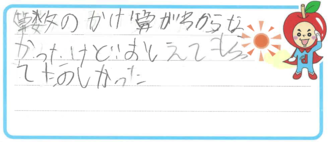 算数のかけ算がわからな
かったけどおしえてもらっ
てたのしかった